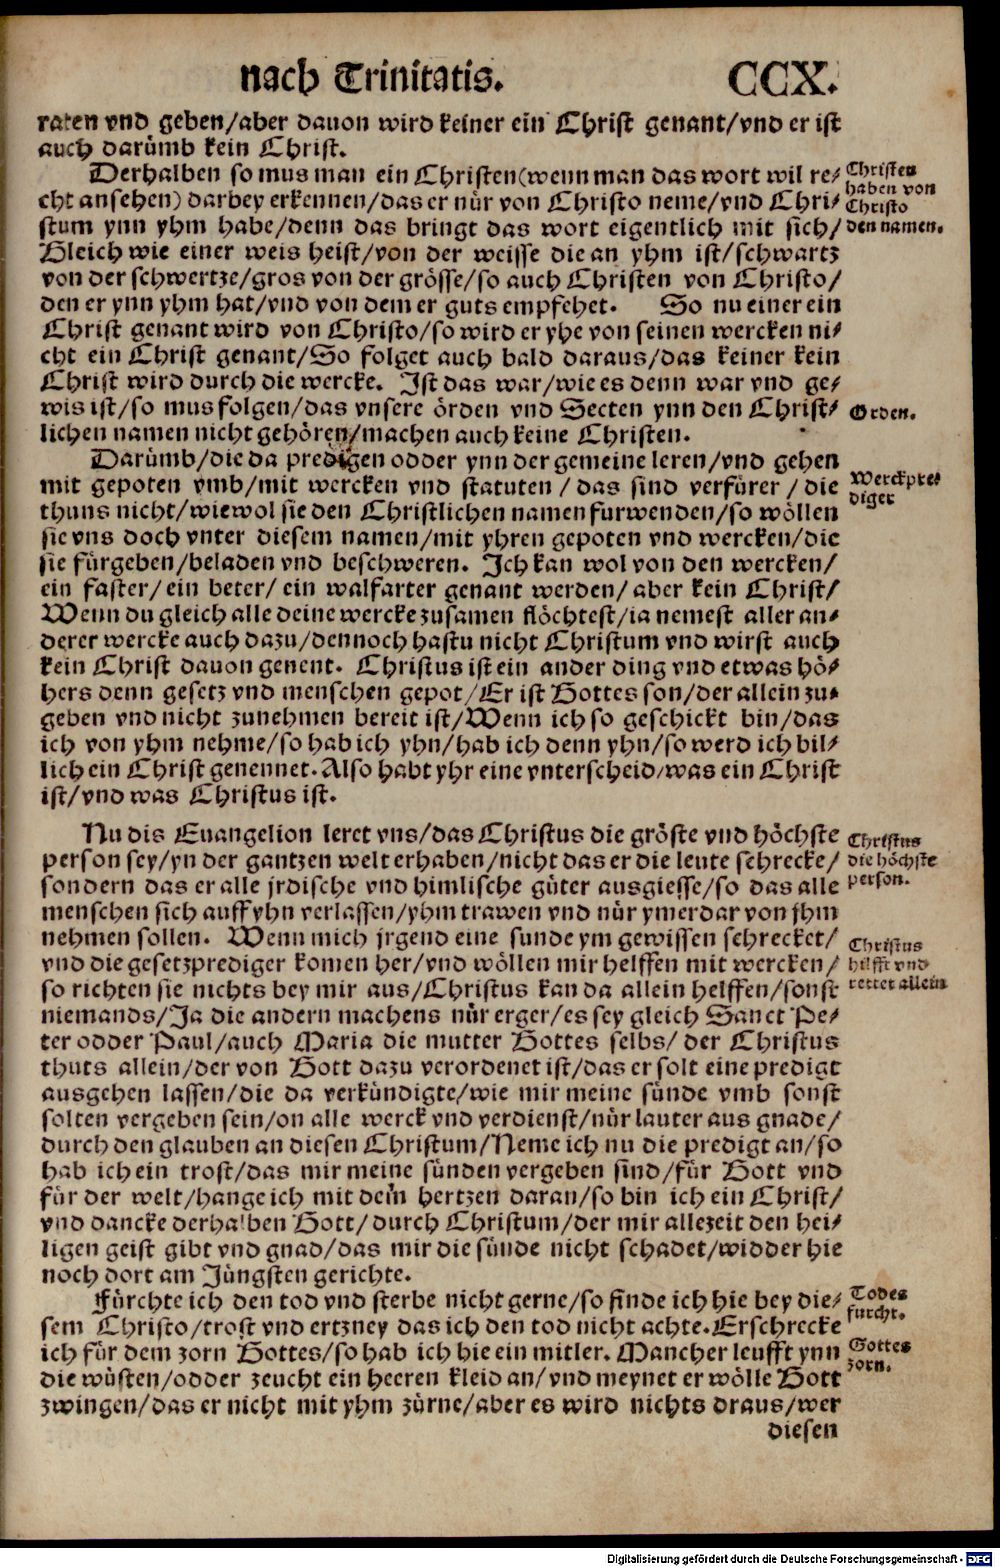 nach Trinitatis. CCX.
raten vnd geben/aber dauon wird keiner ein Christ genant/vnd er ist
auch darümb kein Christ.
Derhalben so mus man ein Christen(wenn man das wort wil re/
cht ansehen) darbey erkennen/das er nür von Christo neme/vnd Chri/
stum ynn yhm habe/denn das bringt das wort eigentlich mit sich/
Gleich wie einer weis heist/von der weisse die an yhm ist/schwartz
von der schwertze/gros von der grösse/so auch Christen von Christo/
den er ynn yhm hat/vnd von dem er guts empfehet. So nu einer ein
Christ genant wird von Christo/so wird er yhe von seinen wercken ni/
cht ein Christ genant/So folget auch bald daraus/das keiner kein
Christ wird durch die wercke. Ist das war/wie es denn war vnd ge/
wis ist/so mus folgen/das vnsere örden vnd Secten ynn den Christ/
lichen namen nicht gehören/machen auch keine Christen.
Darümb/die da predigen odder ynn der gemeine leren/vnd gehen
mit gepoten vmb/mit wercken vnd statuten/das sind verfürer/die
thuns nicht/wiewol sie den Christlichen namen furwenden/so wöllen
sie vns doch vnter diesem namen/mit yhren gepoten vnd wercken/die
sie fürgeben/beladen vnd beschweren. Ich kan wol von den wercken/
ein faster/ein beter/ein walfarter genant werden/aber kein Christ/
Wenn du gleich alle deine wercke zusamen flöchtest/ia nemest aller an-
derer wercke auch dazu/dennoch hastu nicht Christum vnd wirst auch
kein Christ dauon genent. Christus ist ein ander ding vnd etwas hö/
hers denn gesetz vnd menschen gepot/Er ist Gottes son/der allein zu-
geben vnd nicht zunehmen bereit ist/Wenn ich so geschickt bin/das
ich von yhm nehme/so hab ich yhn/hab ich denn yhn/so werd ich bil/
lich ein Christ genennet. Also habt yhr eine vnterscheid/was ein Christ
ist/vnd was Christus ist.
Nu dis Euangelion leret vns/das Christus die gröste vnd höchste
person sey/yn der gantzen welt erhaben/nicht das er die leute schrecke/
sondern das er alle jrdische vnd himlische güter ausgiesse/so das alle
menschen sich auff yhn verlassen/yhm trawen vnd nür ymerdar von jhm
nehmen sollen. Wenn mich jrgend eine sunde ym gewissen schrecket/
vnd die gesetzprediger komen her/vnd wöllen mir helffen mit wercken/
so richten sie nichts bey mir aus/Christus kan da allein helffen/sonst
niemands/Ja die andern machens nür erger/es sey gleich Sanct Pe/
ter odder Paul/auch Maria die mutter Gottes selbs/der Christus
thuts allein/der von Gott dazu verordenet ist/das er solt eine predigt
ausgehen lassen/die da verkündigte/wie mir meine sünde vmb sonst
solten vergeben sein/on alle werck vnd verdienst/nür lauter aus gnade/
durch den glauben an diesen Christum/Neme ich nu die predigt an/so
hab ich ein trost/das mir meine sünden vergeben sind/für Gott vnd
für der welt/hange ich mit dem hertzen daran/so bin ich ein Christ/
vnd dancke derhalben Gott/durch Christum/der mir allezeit den hei/
ligen geist gibt vnd gnad/das mir die sünde nicht schadet/widder hie
noch dort am Jüngsten gerichte.
Fürchte ich den tod vnd sterbe nicht gerne/so finde ich hie bey die/
sem Christo/trost vnd ertzney das ich den tod nicht achte. Erschrecke
ich für dem zorn Gottes/so hab ich hie ein mitler. Mancher leufft ynn
die wüsten/odder zeucht ein heeren kleid an/vnd meynet er wölle Gott
zwingen/das er nicht mit yhm zürne/aber es wird nichts draus/wer
diesen
Christen
haben von
Christo
den namen.
Orden.
Werckpre/
diger
Christus
die höchste
person.
Christus
hilfft vnd
rettet allein
Todes
furcht.
Gottes
zorn.
Digitalisierung gefördert durch die Deutsche Forschungsgemeinschaft - DFG